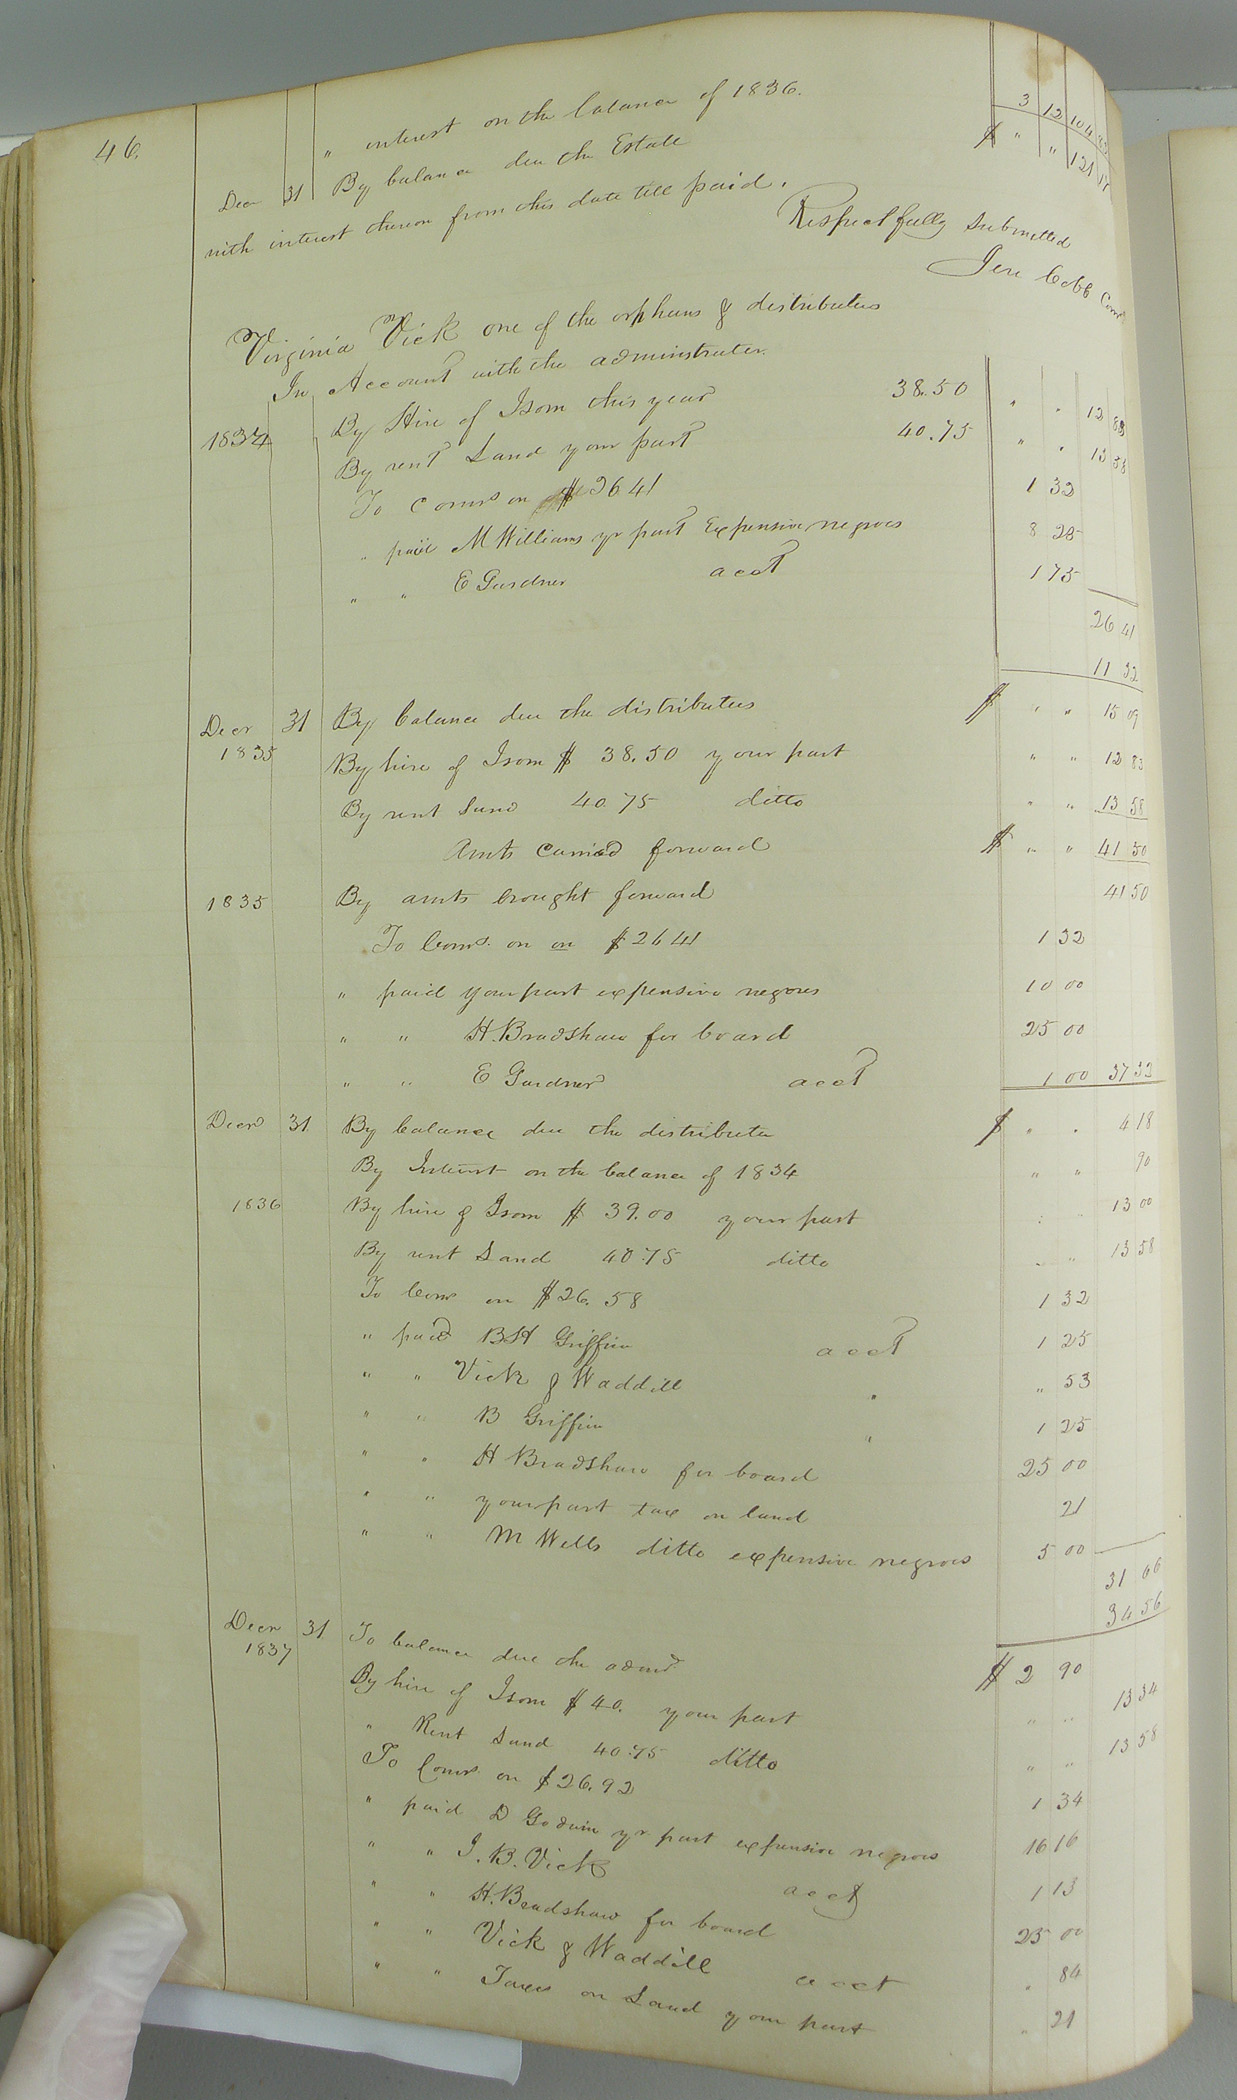 46.
" interest on the balance of 1836. 3 12 104
Decr 31 By balance due the Estate $ " " 121
with interest thereon from this date till paid.
Respectfully Submitted
Jere Cobb Comr
Virginia Vick one of the orphans & distributees
In Account with the administrater.
1834 By Hire of Isom this year 38.50 " " 12 83
By rent Land your part 40.75 " " 13 58
To Coms on $26 41 1 32
" paid M Williams yr part Expensive negroes 8 25
" " E Gardner acct 1 75
26 41
11 32
Decr 31 By balance due the distributees $ " " 15 09
1835 By hire of Isom $ 38.50 your part " " 12 83
By rent Land 40.75 ditto " " 13 58
Amts Carried forward $ " " 41 50
1835 By amts brought forward 41 50
To Coms. on on $26 41 1 32
" paid your part expensive negroes 10 00
" " H. Bradshaw for board 25 00
" " E Gardner acct 1 00 37 32
Decr 31 By balance due the distributee $ " " 4 18
By Interest on the balance of 1834 " " 90
1836 By hire of Isom $ 39.00 your part " " 13 00
By rent Land 40.75 ditto " " 13 58
To Coms on $26.58 1 32
" paid BH Griffin acct 1 25
" " Vick & Waddill " " 53
" " B Griffin " 1 25
" " H Bradshaw for board 25 00
" " your part tax on land 21
" " M Wells ditto expensive negroes 5 00
31 66
34 56
Decr 31 To balance due the admr $ 2 90
1837 By hire of Isom $40. your part " " 13 34
" Rent Land 40.75 ditto " " 13 58
To Coms on $26.92 1 34
" paid D Godwin yr part expensive negroes 16 16
" " J. B. Vick acct 1 13
" " H. Bradshaw for board 25 00
" " Vick & Waddill acct " 84
" " Taxes on Land your part " 21